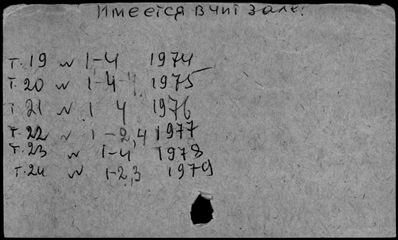 Имеется в чит зале.
т. 19 № 1-4 1974
т. 20 № 1-4 1975
т. 21 № 1 4 1976
т. 22 № 1-2,4 1977
т. 23 № 1-4 1978
т. 24 № 1-2,3 1979